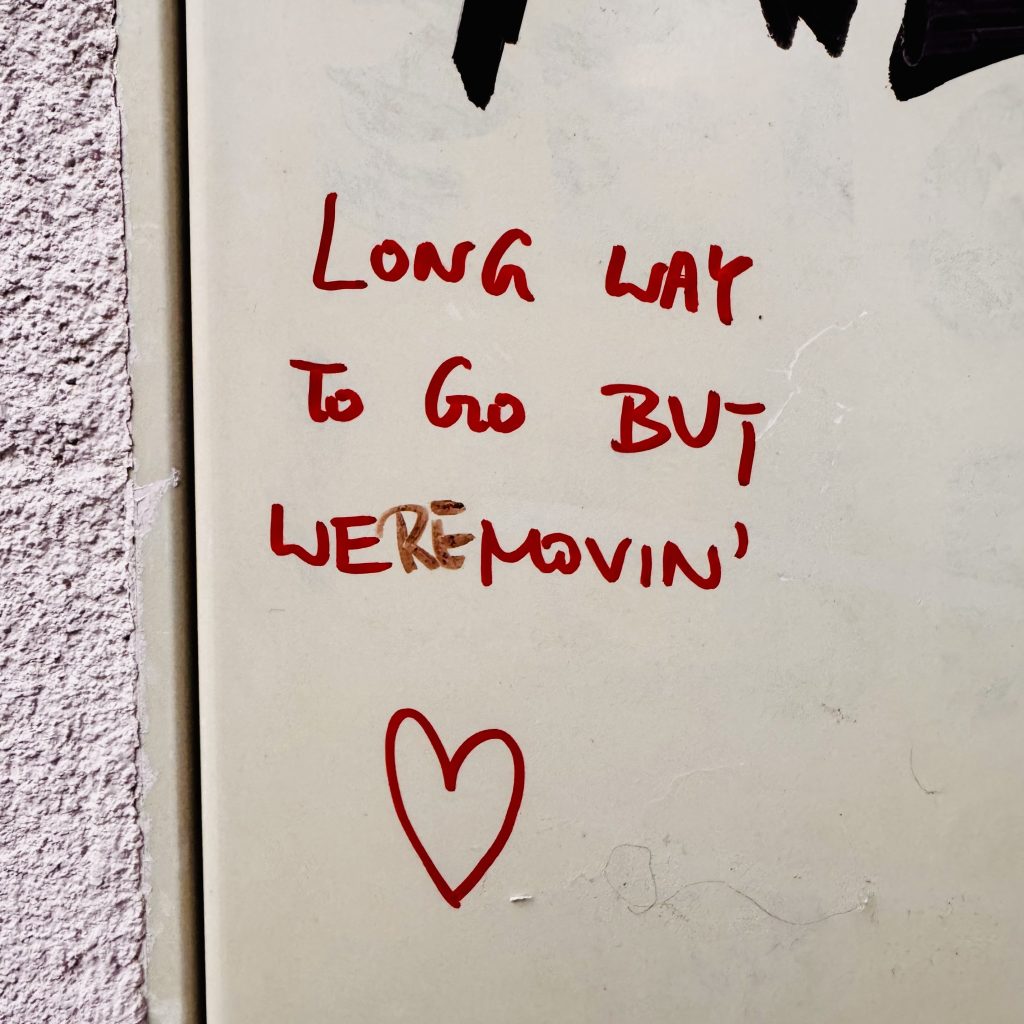 LONG WAY
TO GO BUT
WEREMOVIN'